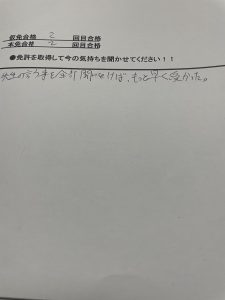 仮免合格 2 回目合格
本免合格 2 回目合格
●免許を取得して今の気持ちを聞かせてください！！
先生の言う事を全部聞いていれば、もっと早く受かった。